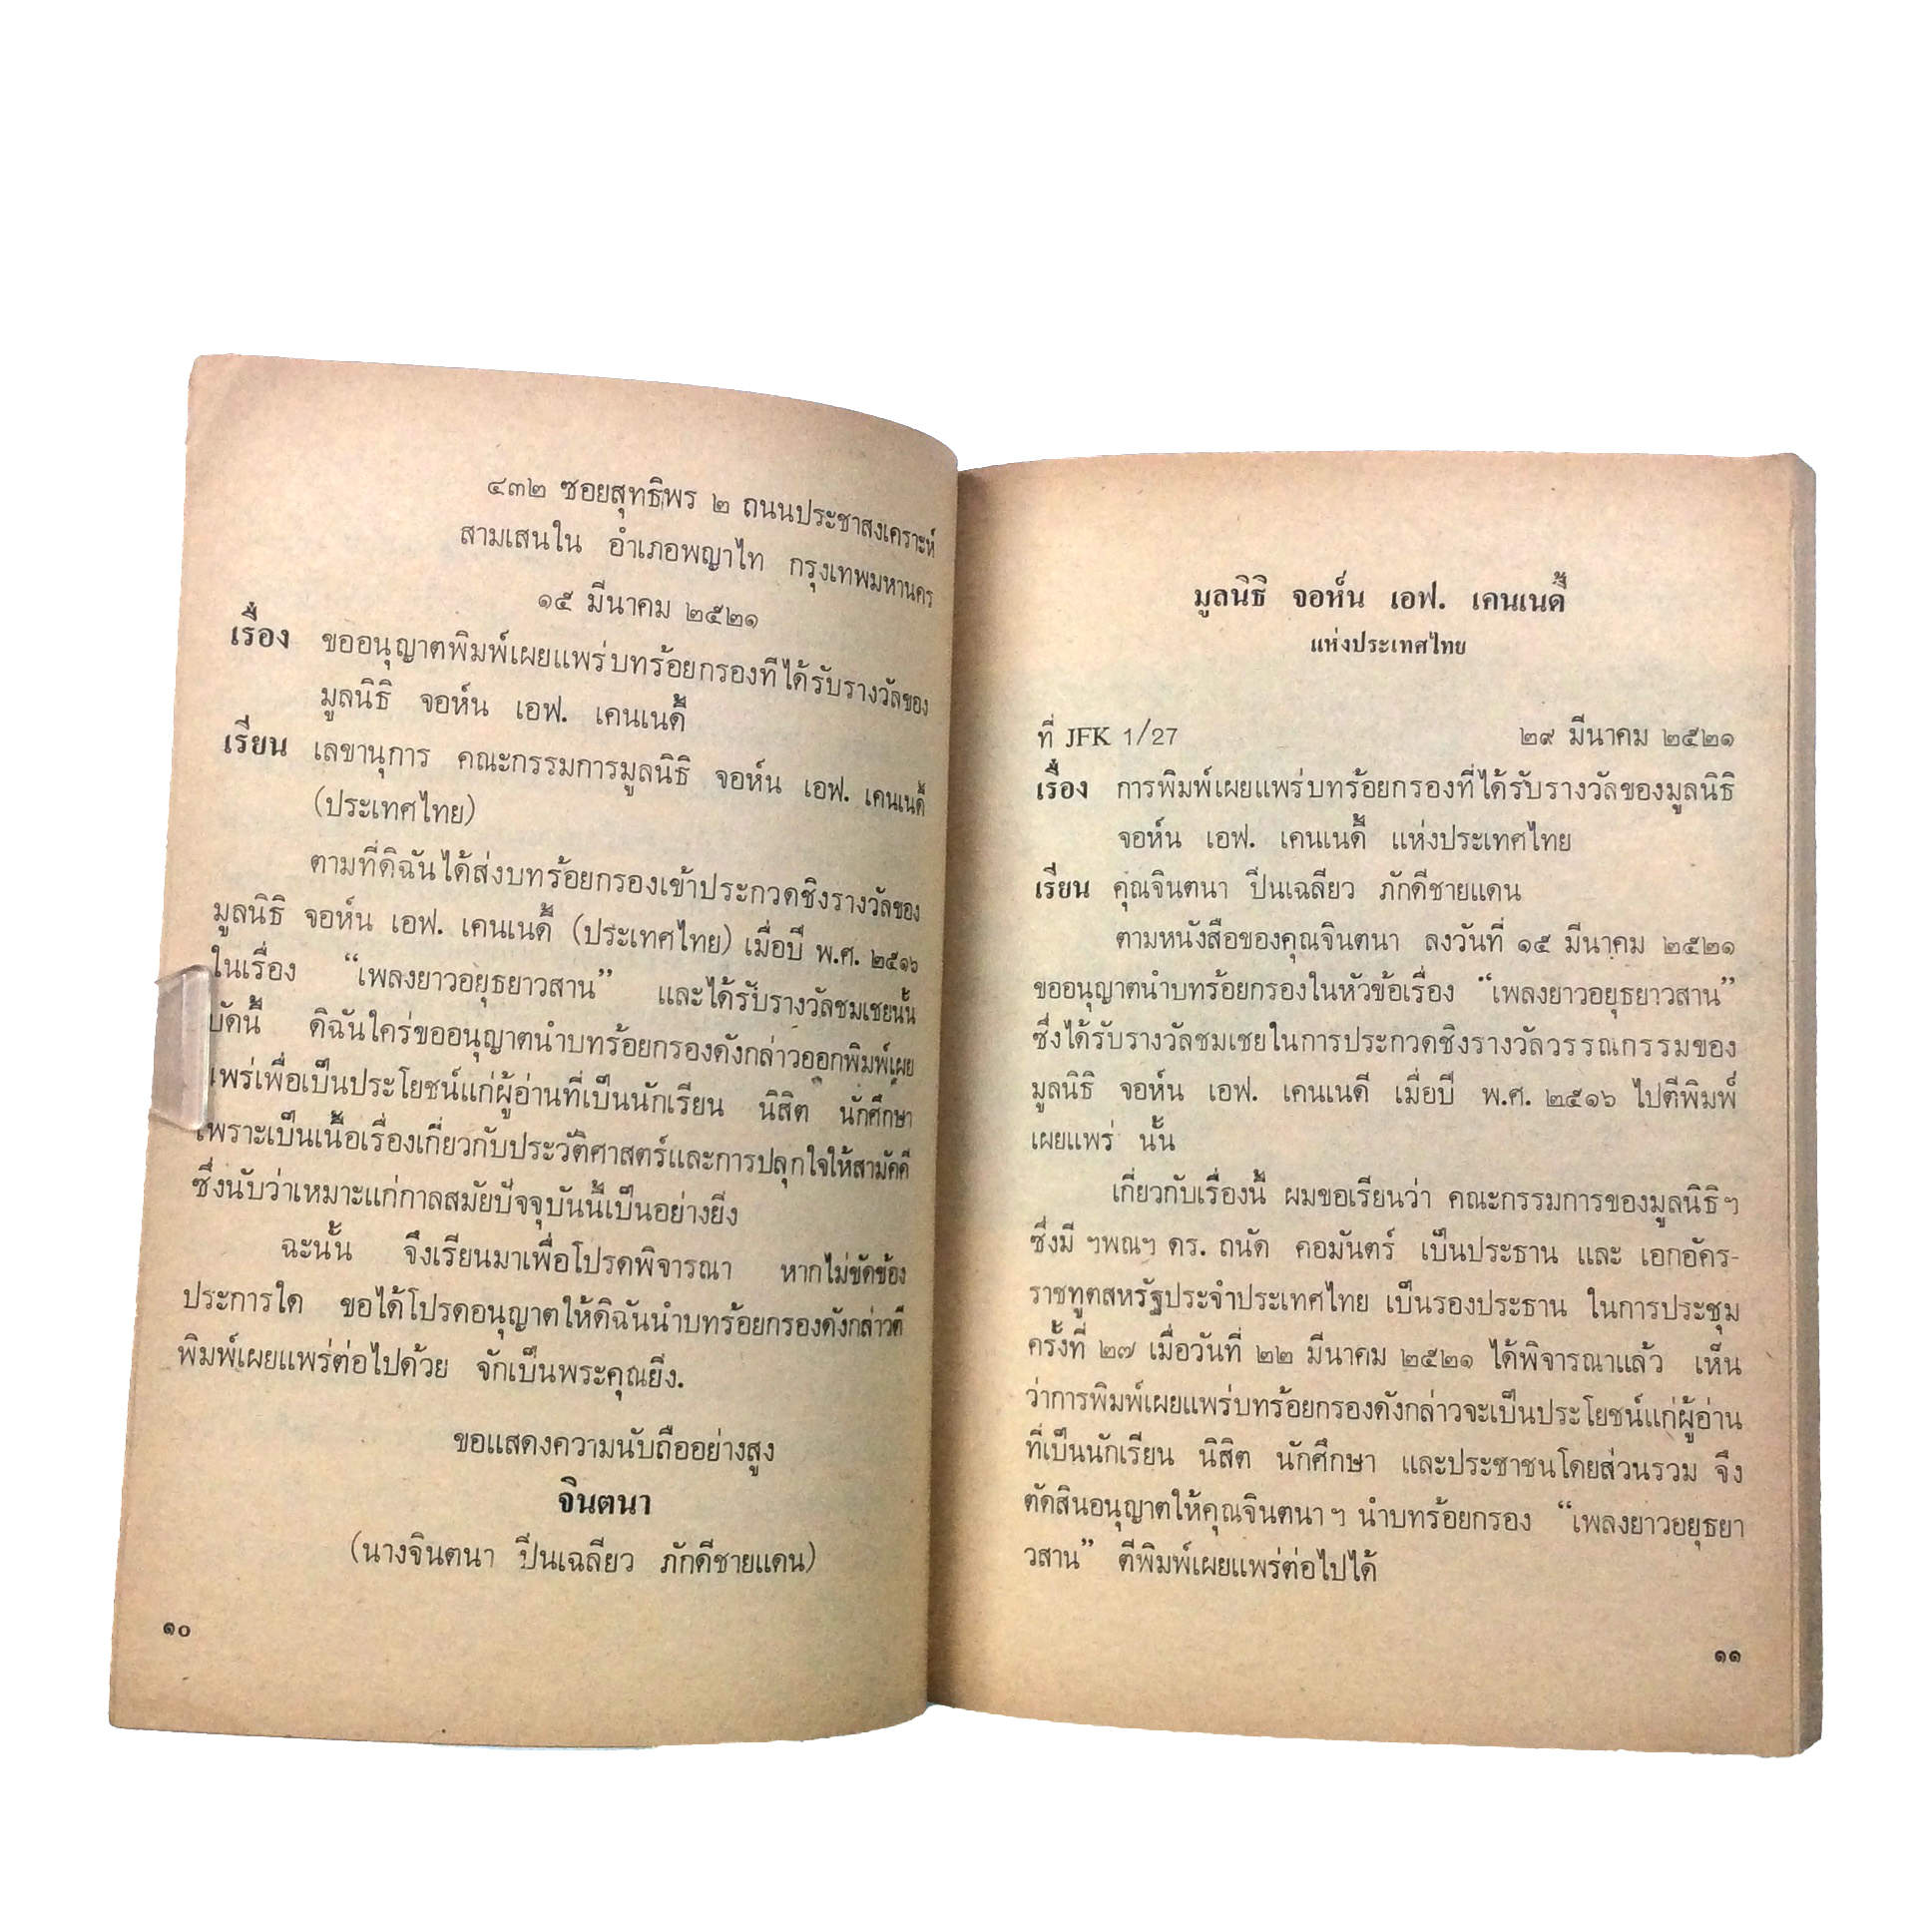 ๔๓๒ ซอยสุทธิพร ๒ ถนนประชาสงเคราะห์
สามเสนใน อำเภอพญาไท กรุงเทพมหานคร
๑๕ มีนาคม ๒๕๒๑
เรื่อง ขออนุญาตพิมพ์เผยแพร่บทร้อยกรองที่ได้รับรางวัลของ
มูลนิธิ จอห์น เอฟ. เคนเนดี้
เรียน เลขานุการ คณะกรรมการมูลนิธิ จอห์น เอฟ. เคนเนดี้
(ประเทศไทย)
ตามที่ดิฉันได้ส่งบทร้อยกรองเข้าประกวดชิงรางวัลของ
มูลนิธิ จอห์น เอฟ. เคนเนดี้ (ประเทศไทย) เมื่อปี พ.ศ. ๒๕๑๖
ในเรื่อง “เพลงยาวอยุธยาวสาน” และได้รับรางวัลชมเชยนั้น
บัดนี้ ดิฉันใคร่ขออนุญาตนำบทร้อยกรองดังกล่าวออกพิมพ์เผย
แพร่เพื่อเป็นประโยชน์แก่ผู้อ่านที่เป็นนักเรียน นิสิต นักศึกษา
เพราะเป็นเนื้อเรื่องเกี่ยวกับประวัติศาสตร์และการปลุกใจให้สามัคคี
ซึ่งนับว่าเหมาะแก่กาลสมัยปัจจุบันนี้เป็นอย่างยิ่ง
ฉะนั้น จึงเรียนมาเพื่อโปรดพิจารณา หากไม่ขัดข้อง
ประการใด ขอได้โปรดอนุญาตให้ดิฉันนำบทร้อยกรองดังกล่าวตี
พิมพ์เผยแพร่ต่อไปด้วย จักเป็นพระคุณยิ่ง.
ขอแสดงความนับถืออย่างสูง
จินตนา
(นางจินตนา ปิ่นเฉลียว ภักดีชายแดน)
๑๐
มูลนิธิ จอห์น เอฟ. เคนเนดี้
แห่งประเทศไทย
ที่ JFK 1/27 ๒๙ มีนาคม ๒๕๒๑
เรื่อง การพิมพ์เผยแพร่บทร้อยกรองที่ได้รับรางวัลของมูลนิธิ
จอห์น เอฟ. เคนเนดี้ แห่งประเทศไทย
เรียน คุณจินตนา ปิ่นเฉลียว ภักดีชายแดน
ตามหนังสือของคุณจินตนา ลงวันที่ ๑๕ มีนาคม ๒๕๒๑
ขออนุญาตนำบทร้อยกรองในหัวข้อเรื่อง “เพลงยาวอยุธยาวสาน”
ซึ่งได้รับรางวัลชมเชยในการประกวดชิงรางวัลวรรณกรรมของ
มูลนิธิ จอห์น เอฟ. เคนเนดี เมื่อปี พ.ศ. ๒๕๑๖ ไปตีพิมพ์
เผยแพร่ นั้น
เกี่ยวกับเรื่องนี้ ผมขอเรียนว่า คณะกรรมการของมูลนิธิฯ
ซึ่งมี ฯพณฯ ดร. ถนัด คอมันตร์ เป็นประธาน และ เอกอัคร-
ราชทูตสหรัฐประจำประเทศไทย เป็นรองประธาน ในการประชุม
ครั้งที่ ๒๗ เมื่อวันที่ ๒๒ มีนาคม ๒๕๒๑ ได้พิจารณาแล้ว เห็น
ว่าการพิมพ์เผยแพร่บทร้อยกรองดังกล่าวจะเป็นประโยชน์แก่ผู้อ่าน
ที่เป็นนักเรียน นิสิต นักศึกษา และประชาชนโดยส่วนรวม จึง
ตัดสินอนุญาตให้คุณจินตนา ฯ นำบทร้อยกรอง “เพลงยาวอยุธยา
วสาน” ตีพิมพ์เผยแพร่ต่อไปได้
๑๑